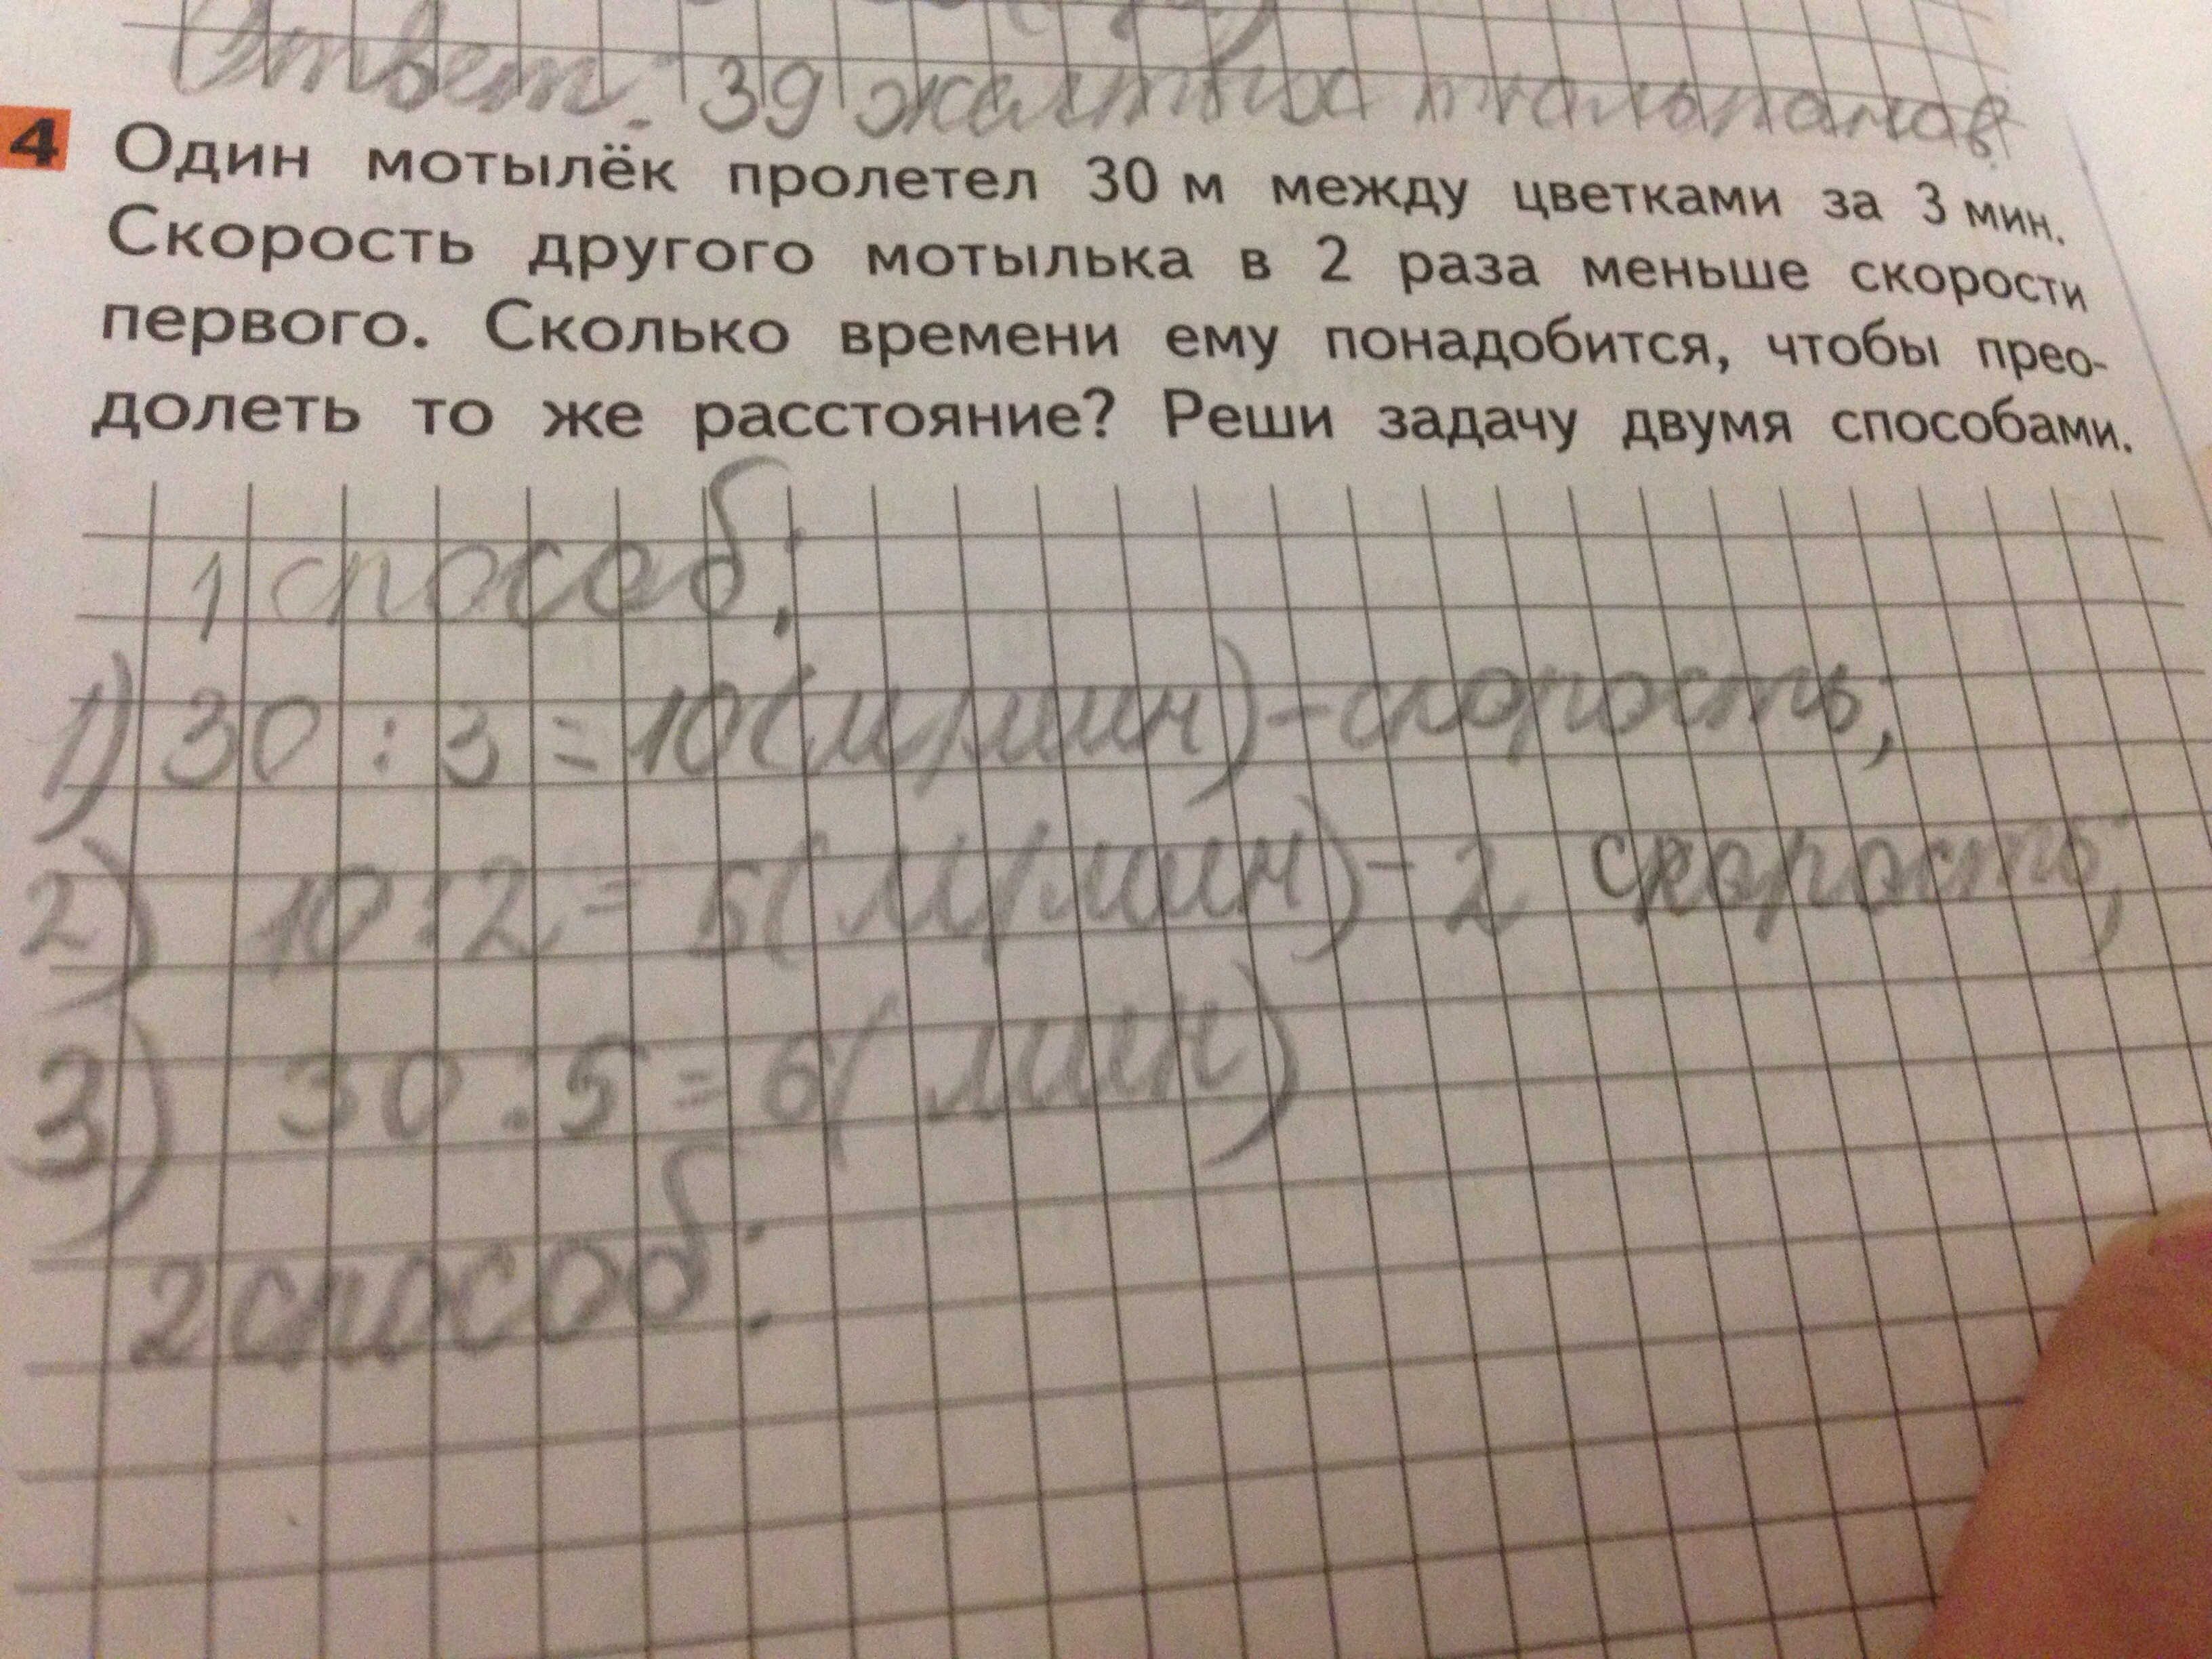 Ответ: 39 желтых тюльпанов.
4 Один мотылёк пролетел 30 м между цветками за 3 мин.
Скорость другого мотылька в 2 раза меньше скорости
первого. Сколько времени ему понадобится, чтобы прео-
долеть то же расстояние? Реши задачу двумя способами.
1 способ:
1) 30 : 3 = 10 (м/мин) - скорость;
2) 10 : 2 = 5 (м/мин) - 2 скорость;
3) 30 : 5 = 6 (мин)
2 способ: